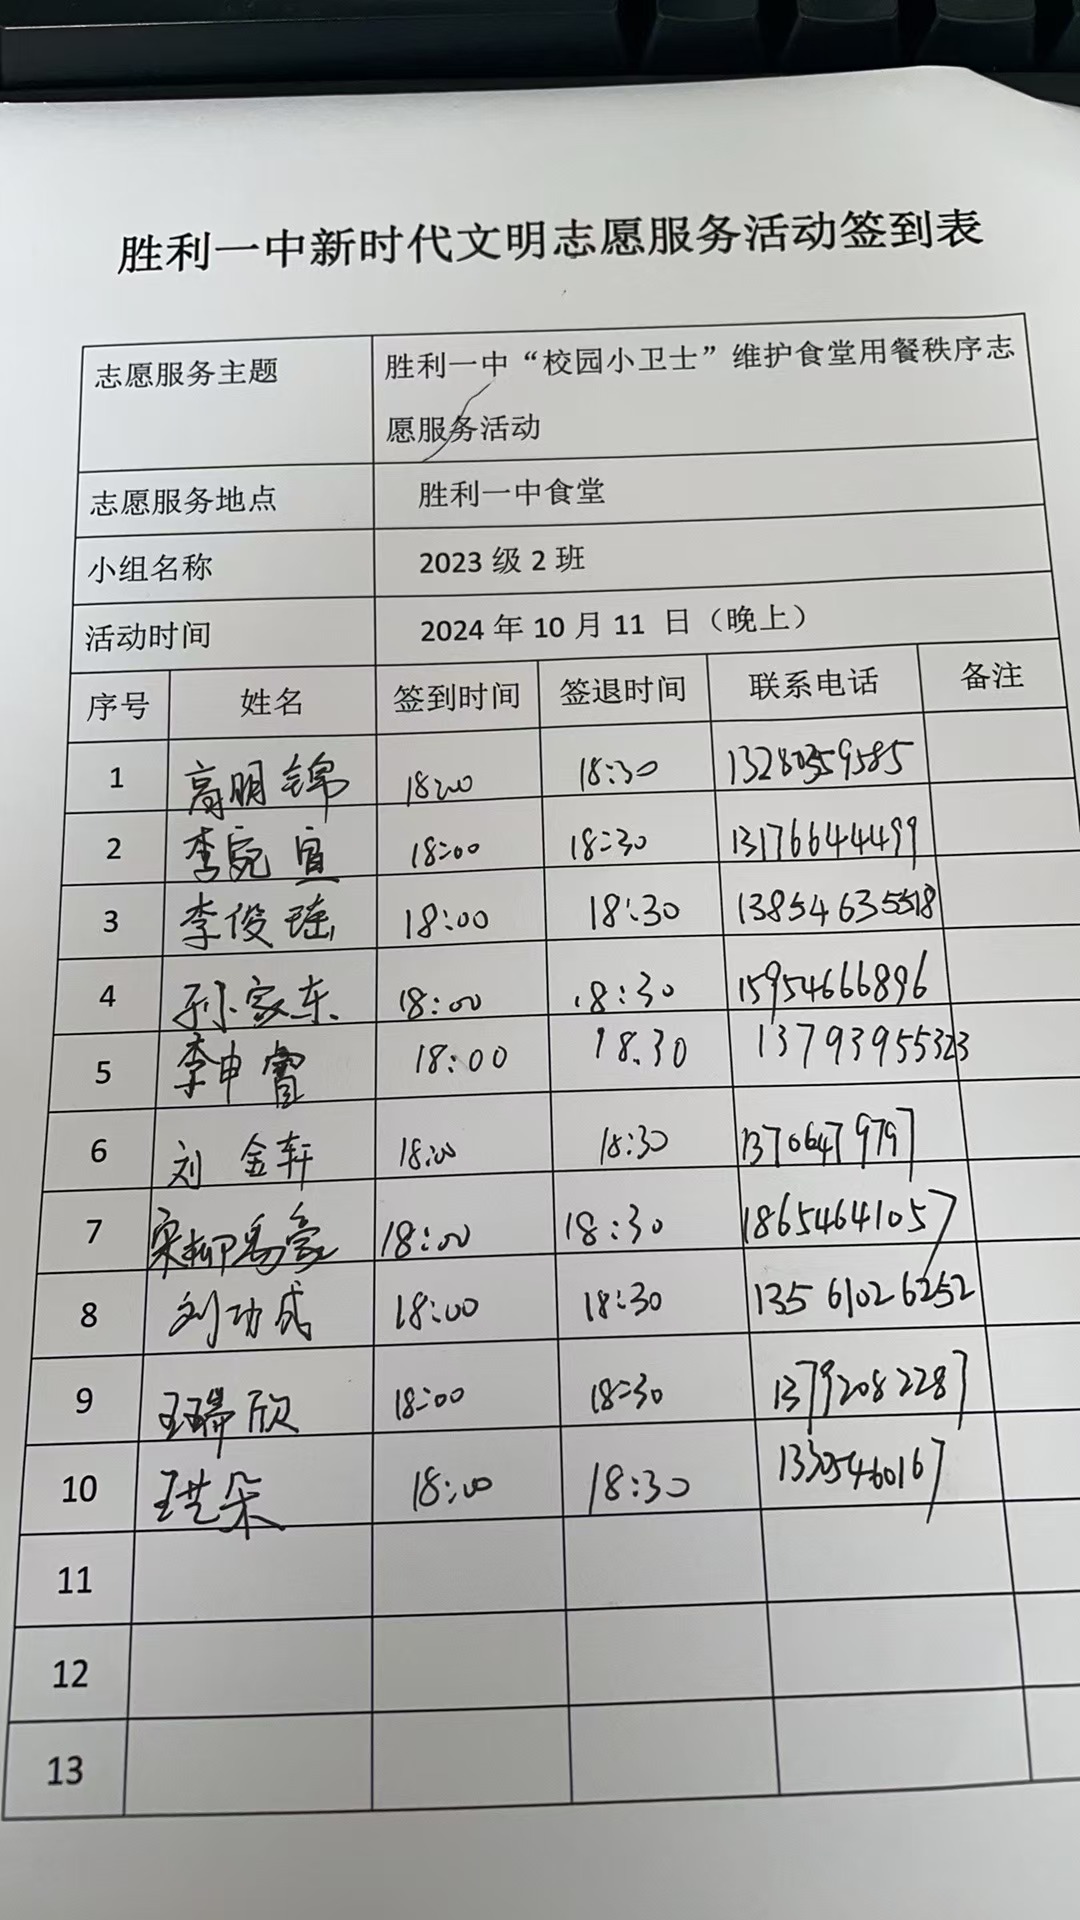 胜利一中新时代文明志愿服务活动签到表
志愿服务主题 胜利一中“校园小卫士”维护食堂用餐秩序志
愿服务活动
志愿服务地点 胜利一中食堂
小组名称 2023 级 2 班
活动时间 2024 年 10 月 11 日（晚上）
序号 姓名 签到时间 签退时间 联系电话 备注
1 高明锦 18:00 18:30 13280359585
2 李宛宜 18:00 18:30 13176644499
3 李俊瑶 18:00 18:30
4 孙家东 18:00 18:30 15954666896
5 李申 18:00 18.30
6 刘金轩 18:00 18:30 13706479797
7 18:00 18:30 18654641057
8 刘功成 18:00 18:30 13561026252
9 王瑞欣 18:00 18:30 13792082287
10 18:00 18:30 13305460167
11
12
13